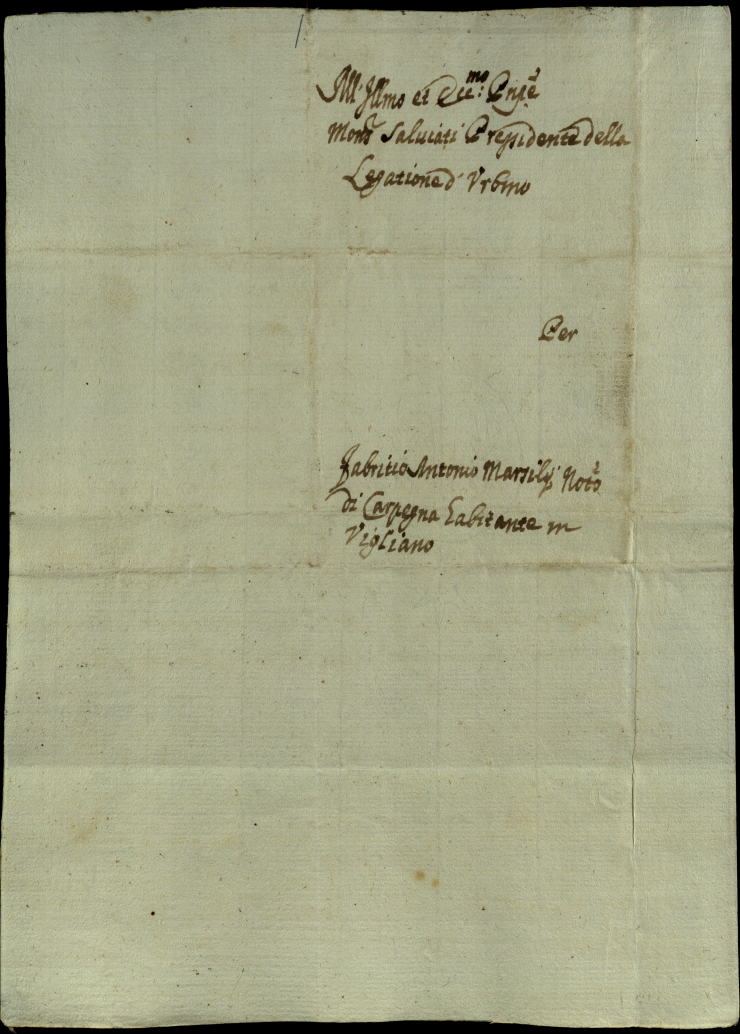 All' Illmo et Ecc.mo Prnpe
Mons.r Salviati Presidente della
Legatione d' Urbino
Per
Fabritio Antonio Marsilij Not.o
di Carpegna habitante in
Vigliano